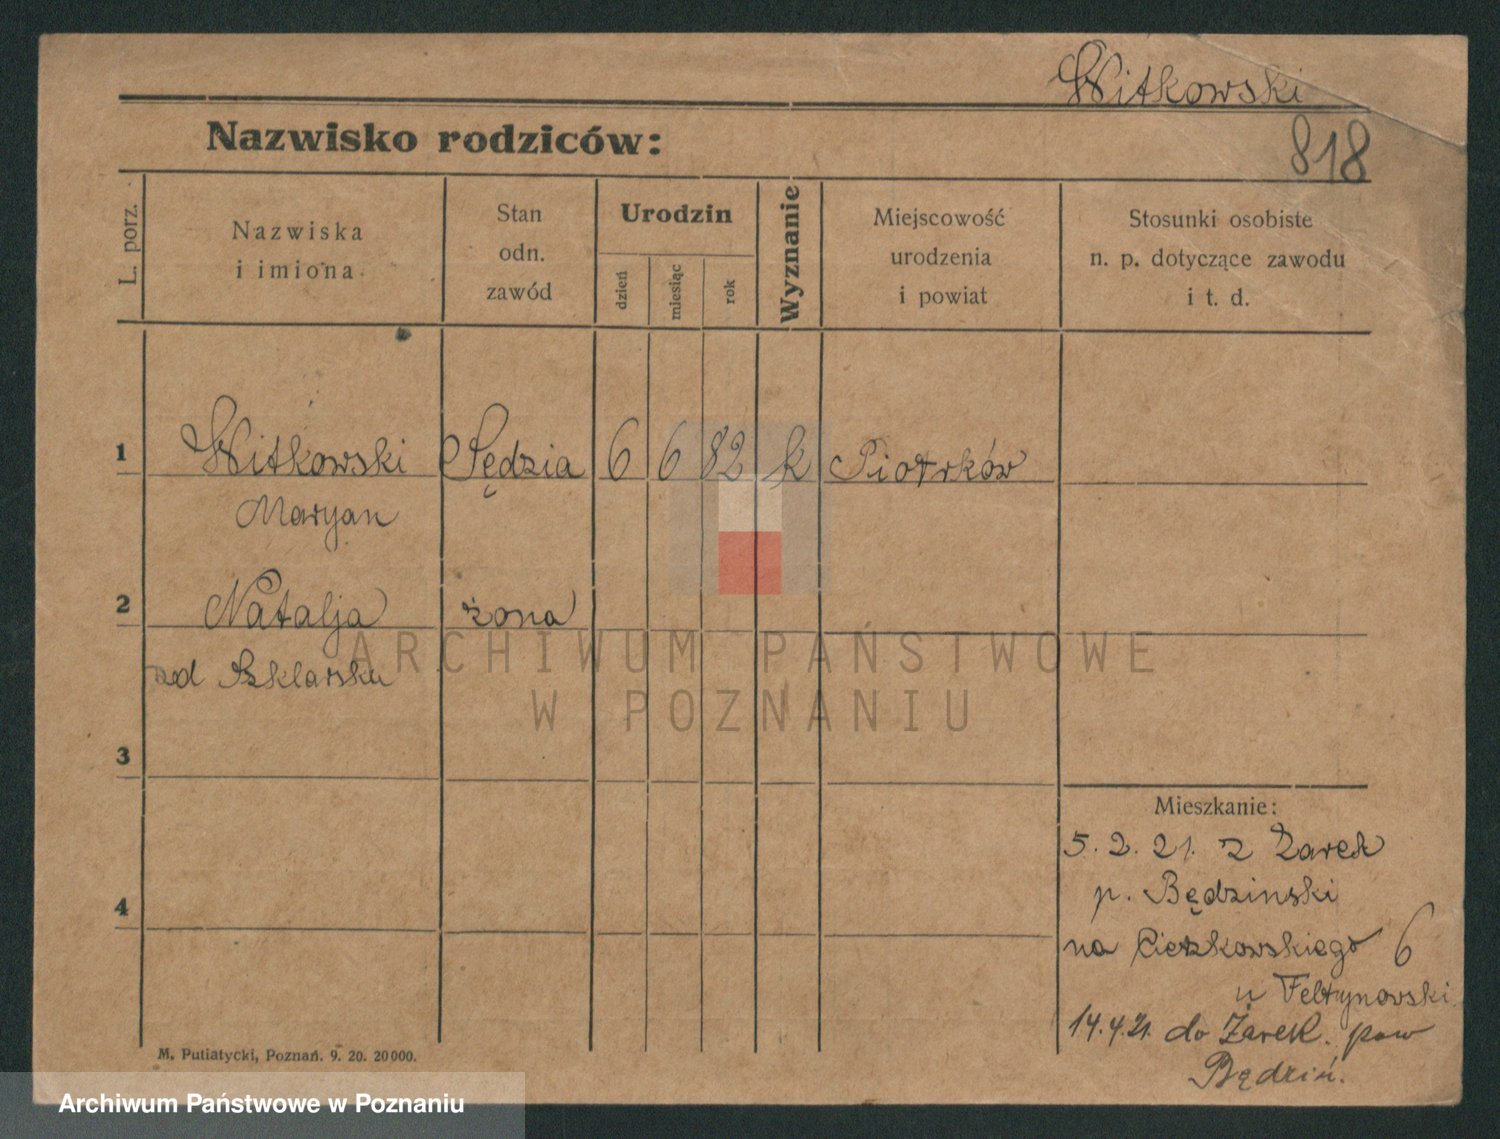 Witkowski
Nazwisko rodziców:
818
L. porz.
Nazwiska
i imiona
Stan
odn.
zawód
Urodzin
dzień
miesiąc
rok
Wyznanie
Miejscowość
urodzenia
i powiat
Stosunki osobiste
n. p. dotyczące zawodu
i t. d.
1 Witkowski Sędzia 6 6 82 k Piotrków
Maryan
2 Natalja żona
zd Szklarska
ARCHIWUM PAŃSTWOWE
W POZNANIU
3
Mieszkanie:
5. 2. 21. z Żarek
p. Będzinski
4
na Cieszkowskiego 6
u Feltynowski
14.4.21. do Żarek. pow
Będzin.
M. Putiatycki, Poznań. 9. 20. 20000.
Archiwum Państwowe w Poznaniu